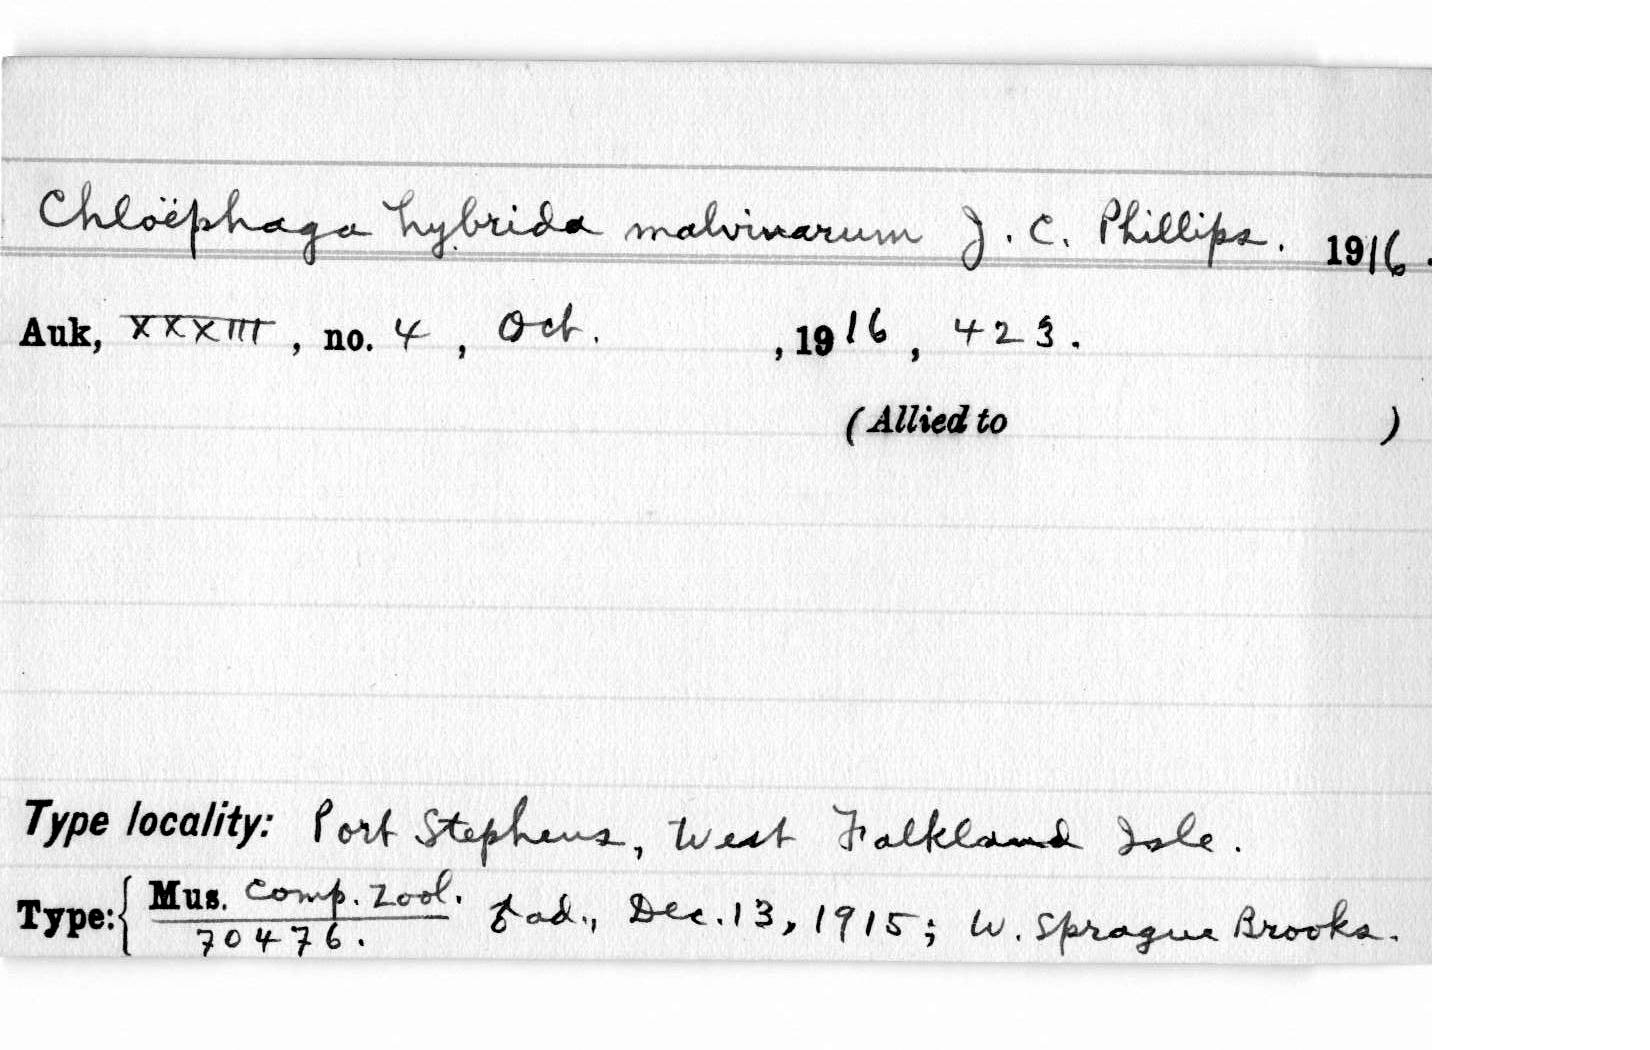 Chloëphaga hybrida malvinarum J. C. Phillips. 1916.
Auk, XXXIII, no. 4, Oct. , 1916, 423.
(Allied to )
Type locality: Port Stephens, West Falkland Isle.
Type: { Mus. Comp. Zool. ad., Dec. 13, 1915; W. Sprague Brooks.
70476.